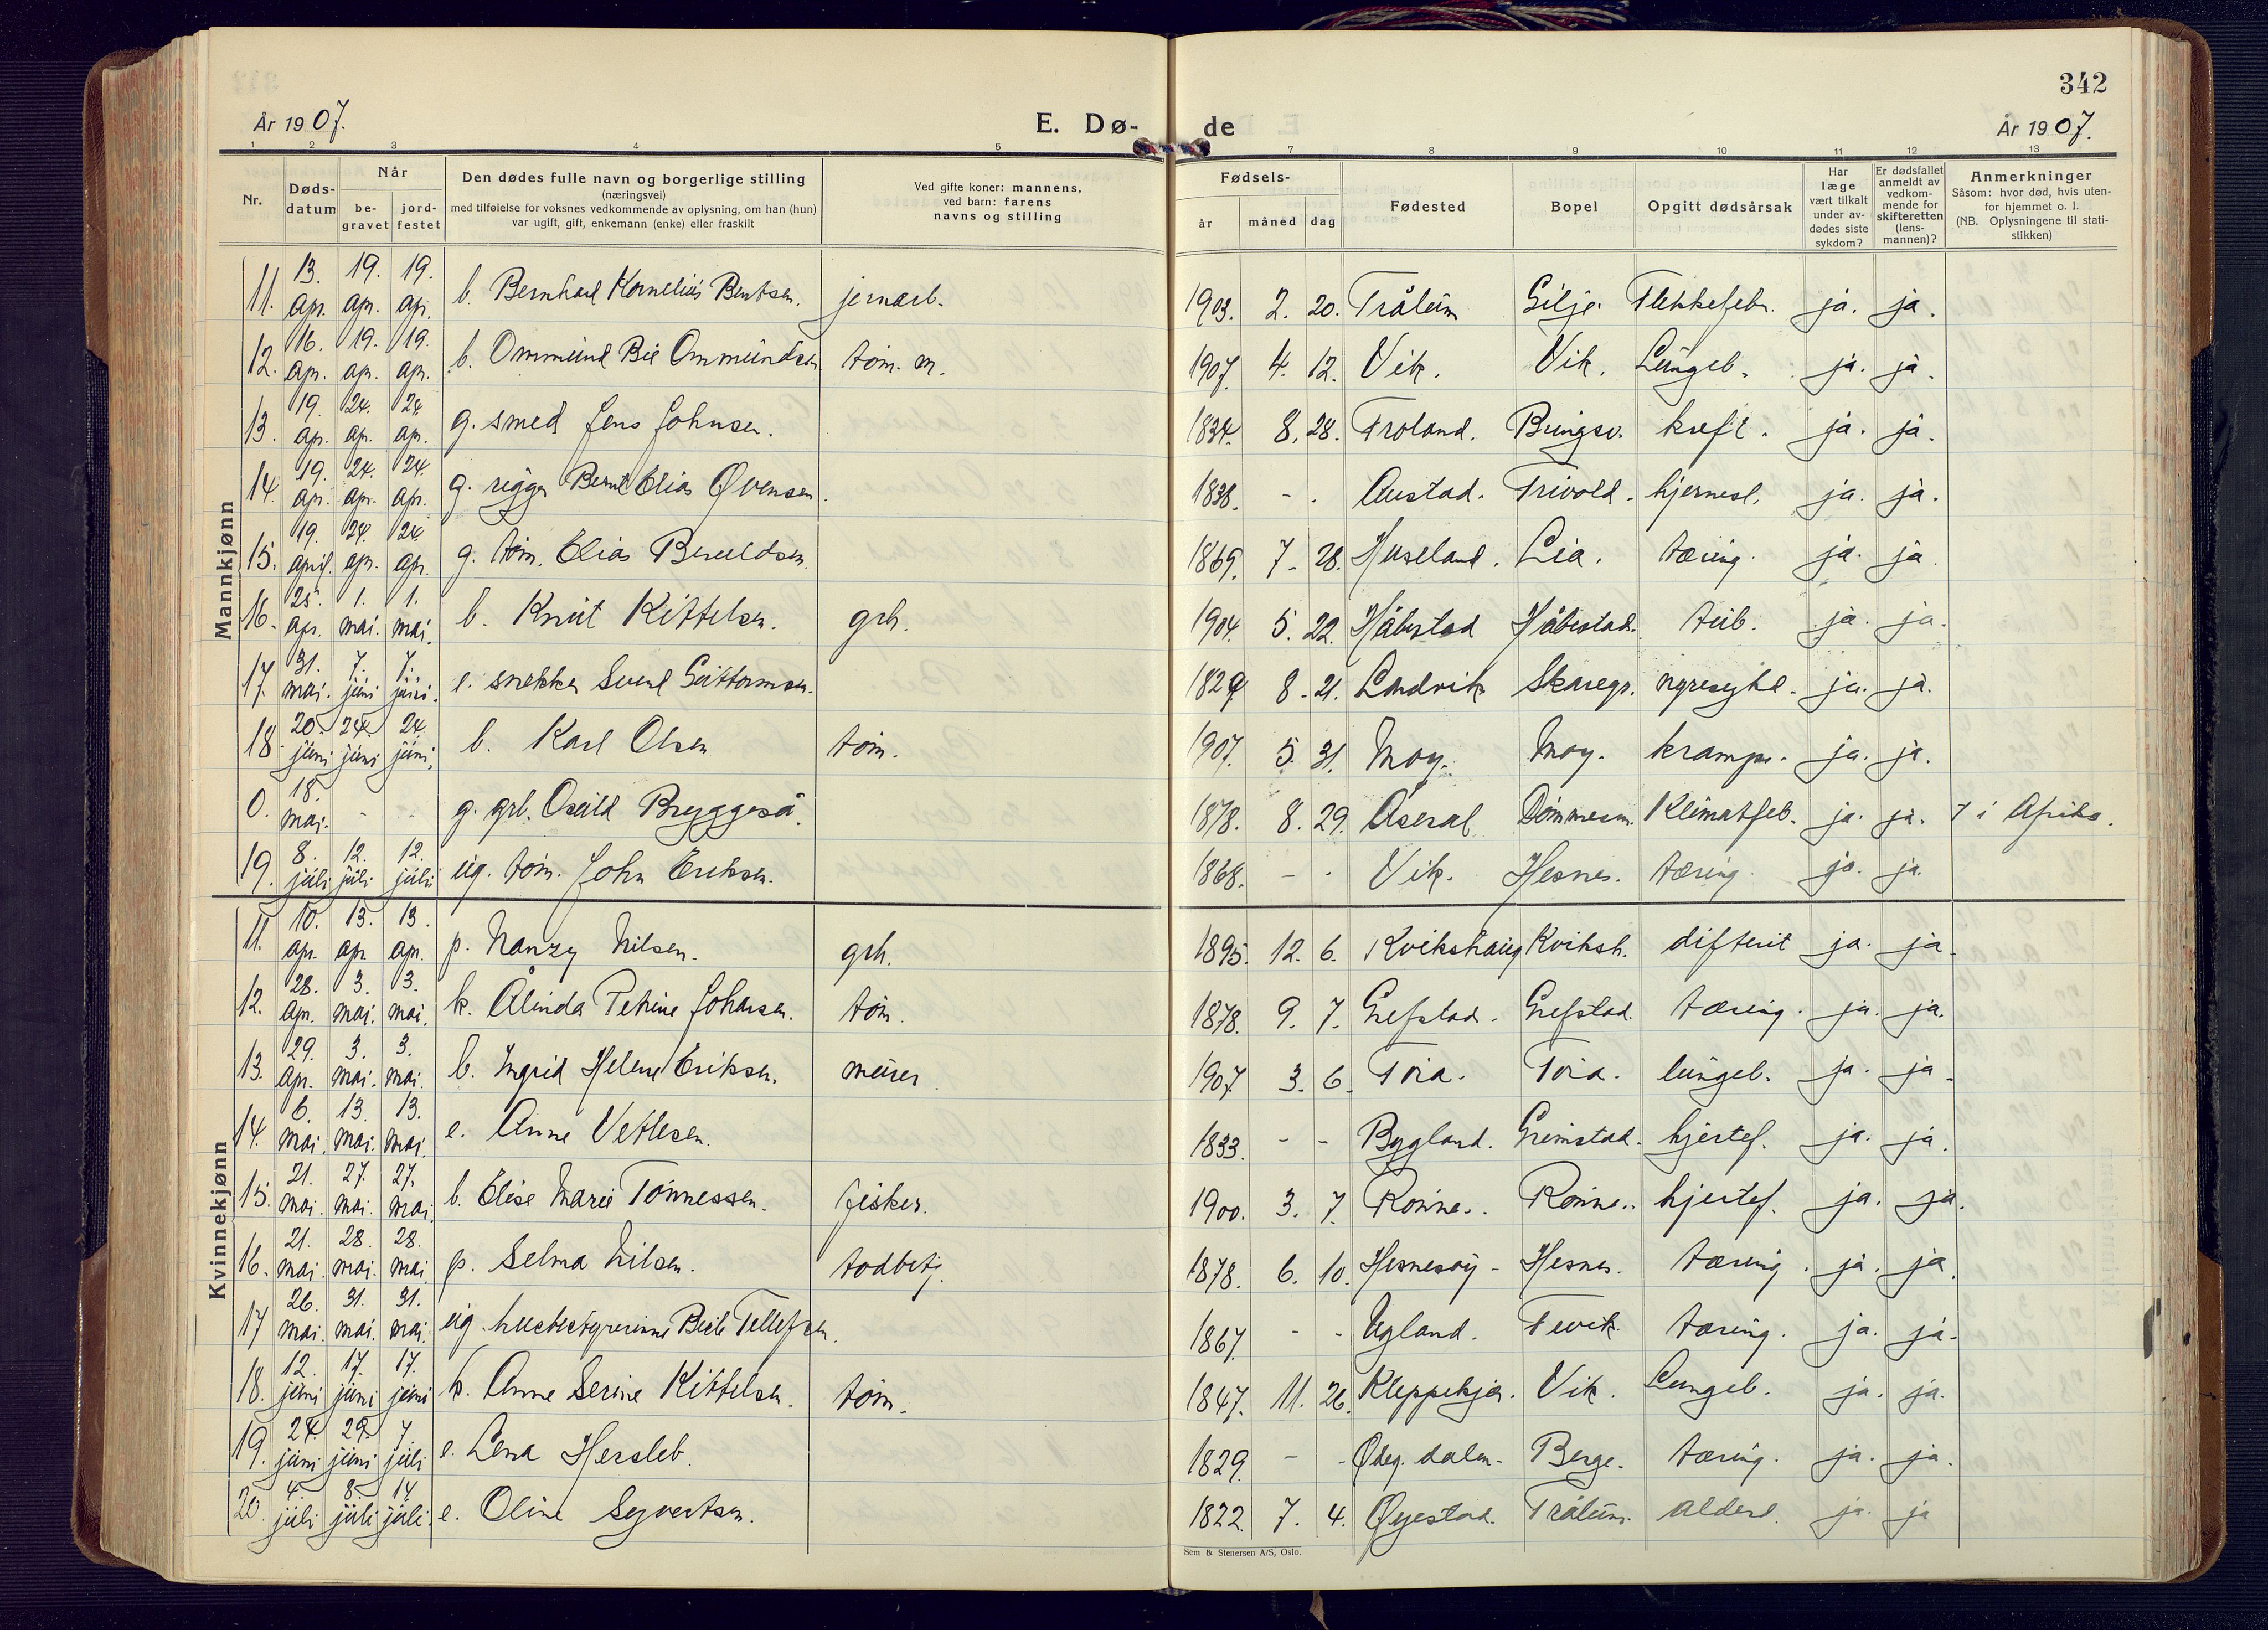 342
År 1907.
E. Dø-
de
År 1907.
1 2 3 4 5 7 8 9 10 11 12 13
Nr.
Døds-
datum
Når
be-
gravet
jord-
festet
Den dødes fulle navn og borgerlige stilling
(næringsvei)
med tilføielse for voksnes vedkommende av oplysning, om han (hun)
var ugift, gift, enkemann (enke) eller fraskilt
Ved gifte koner: mannens,
ved barn: farens
navns og stilling
Fødsels-
år
måned
dag
Fødested
Bopel
Opgitt dødsårsak
Har
læge
vært tilkalt
under av-
dødes siste
sykdom?
Er dødsfallet
anmeldt av
vedkom-
mende for
skifteretten
(lens-
mannen)?
Anmerkninger
Såsom: hvor død, hvis uten-
for hjemmet o. l.
(NB. Oplysningene til stati-
stikken)
Mannkjønn
11. 13. apr. 19. apr. 19. apr. b. Bernhard Kornelius Bentsen. jernarb. 1903. 2. 20. Trålum Gilje. Flekkefeb. ja. ja.
12. 16. apr. 19. apr. 19. apr. b. Ommund Bie Ommundsen tøm. m. 1907. 4. 12. Vik. Vik. Lungeb. ja. ja.
13. 19. apr. 24. apr. 24 apr. g. smed Jens Johnsen. 1834. 8. 28. Froland. Bringsv. kreft. ja. ja.
14. 19. apr. 24. apr. 24. apr. g. rigger Bernt Elias Øvensen. 1838. - . Austad. Trivold. hjernesl. ja. ja.
15. 19. april. 24. apr. 24 apr. g. tøm. Elias Beruldsen. 1869. 7. 28. Huseland. Lia. tæring. ja. ja
16. 25. apr. 1. mai. 1. mai. b. Knut Kittelsen. grb. 1904. 5. 22. Håbestad Håbestad. tub. ja. ja.
17. 31. mai. 7. juni 7. juni. e. snekker Svend Guttormsen. 1829 8. 21. Landvik Skaregr. nyresykd. ja. ja.
18. 20. juni 24. juni 24. juni. b. Karl Olsen tøm. 1907. 5. 31. Moy. Moy. krampe. ja. ja.
0. 18. mai. - - g. grb. Osuld Bryggeså. 1878. 8. 29. Åseral Dømmesm. Klimatfeb. ja. ja. † i Afrika.
19. 8. juli 12. juli 12. juli ug. tøm. John Eriksen. 1868. - . Vik. Hesnes. tæring. ja. ja.
Kvinnekjønn
11. 10. apr. 13. apr. 13. apr. p. Nanzy Nilsen. grb. 1895. 12. 6. Kvikshaug Kviksh. difterit ja. ja.
12. 28. apr. 3. mai. 3. mai. k. Ålinda Petrine Johansen. tøm. 1878. 9. 7. Grefstad. Grefstad. tæring. ja. ja.
13. 29. apr. 3. mai. 3. mai. b. Ingrid Helene Eriksen. murer. 1907. 3. 6. Tora. Tora. lungeb. ja. ja.
14. 6. mai. 13. mai. 13. mai. e. Anne Vetlesen. 1833. - - Bygland. Grimstad. hjertef. ja. ja.
15. 21. mai. 27. mai. 27. mai. b. Elise Marie Tønnessen. fisker. 1900. 3. 7. Rønne. Rønne. hjertef. ja. ja.
16. 21. mai. 28. mai. 28. mai. p. Selma Nilsen. todbetj. 1878. 6. 10. Hesnesøy - Hesnes. tæring. ja. ja.
17 26. mai. 31. mai. 31. mai. ug. husbestyrerinne Berte Tellefsen. 1867. - - Ugland. Fevik. tæring. ja. ja.
18. 12. juni 17. juni 17. juni k. Anne Serine Kittelsen. tøm. 1847. 11. 26. Kleppekjær. Vik. Lungeb. ja. ja.
19. 24. juni 29. juni 7. juli e. Lena Hersleb. 1829. - - Ødeg. dalen. Berge. tæring. ja. ja.
20. 4. juli 8. juli 14 juli. e. Oline Syvertsen. 1822. 7. 4. Øyestad. Trålum. alderd. ja. ja
Sem & Stenersen A/S, Oslo.